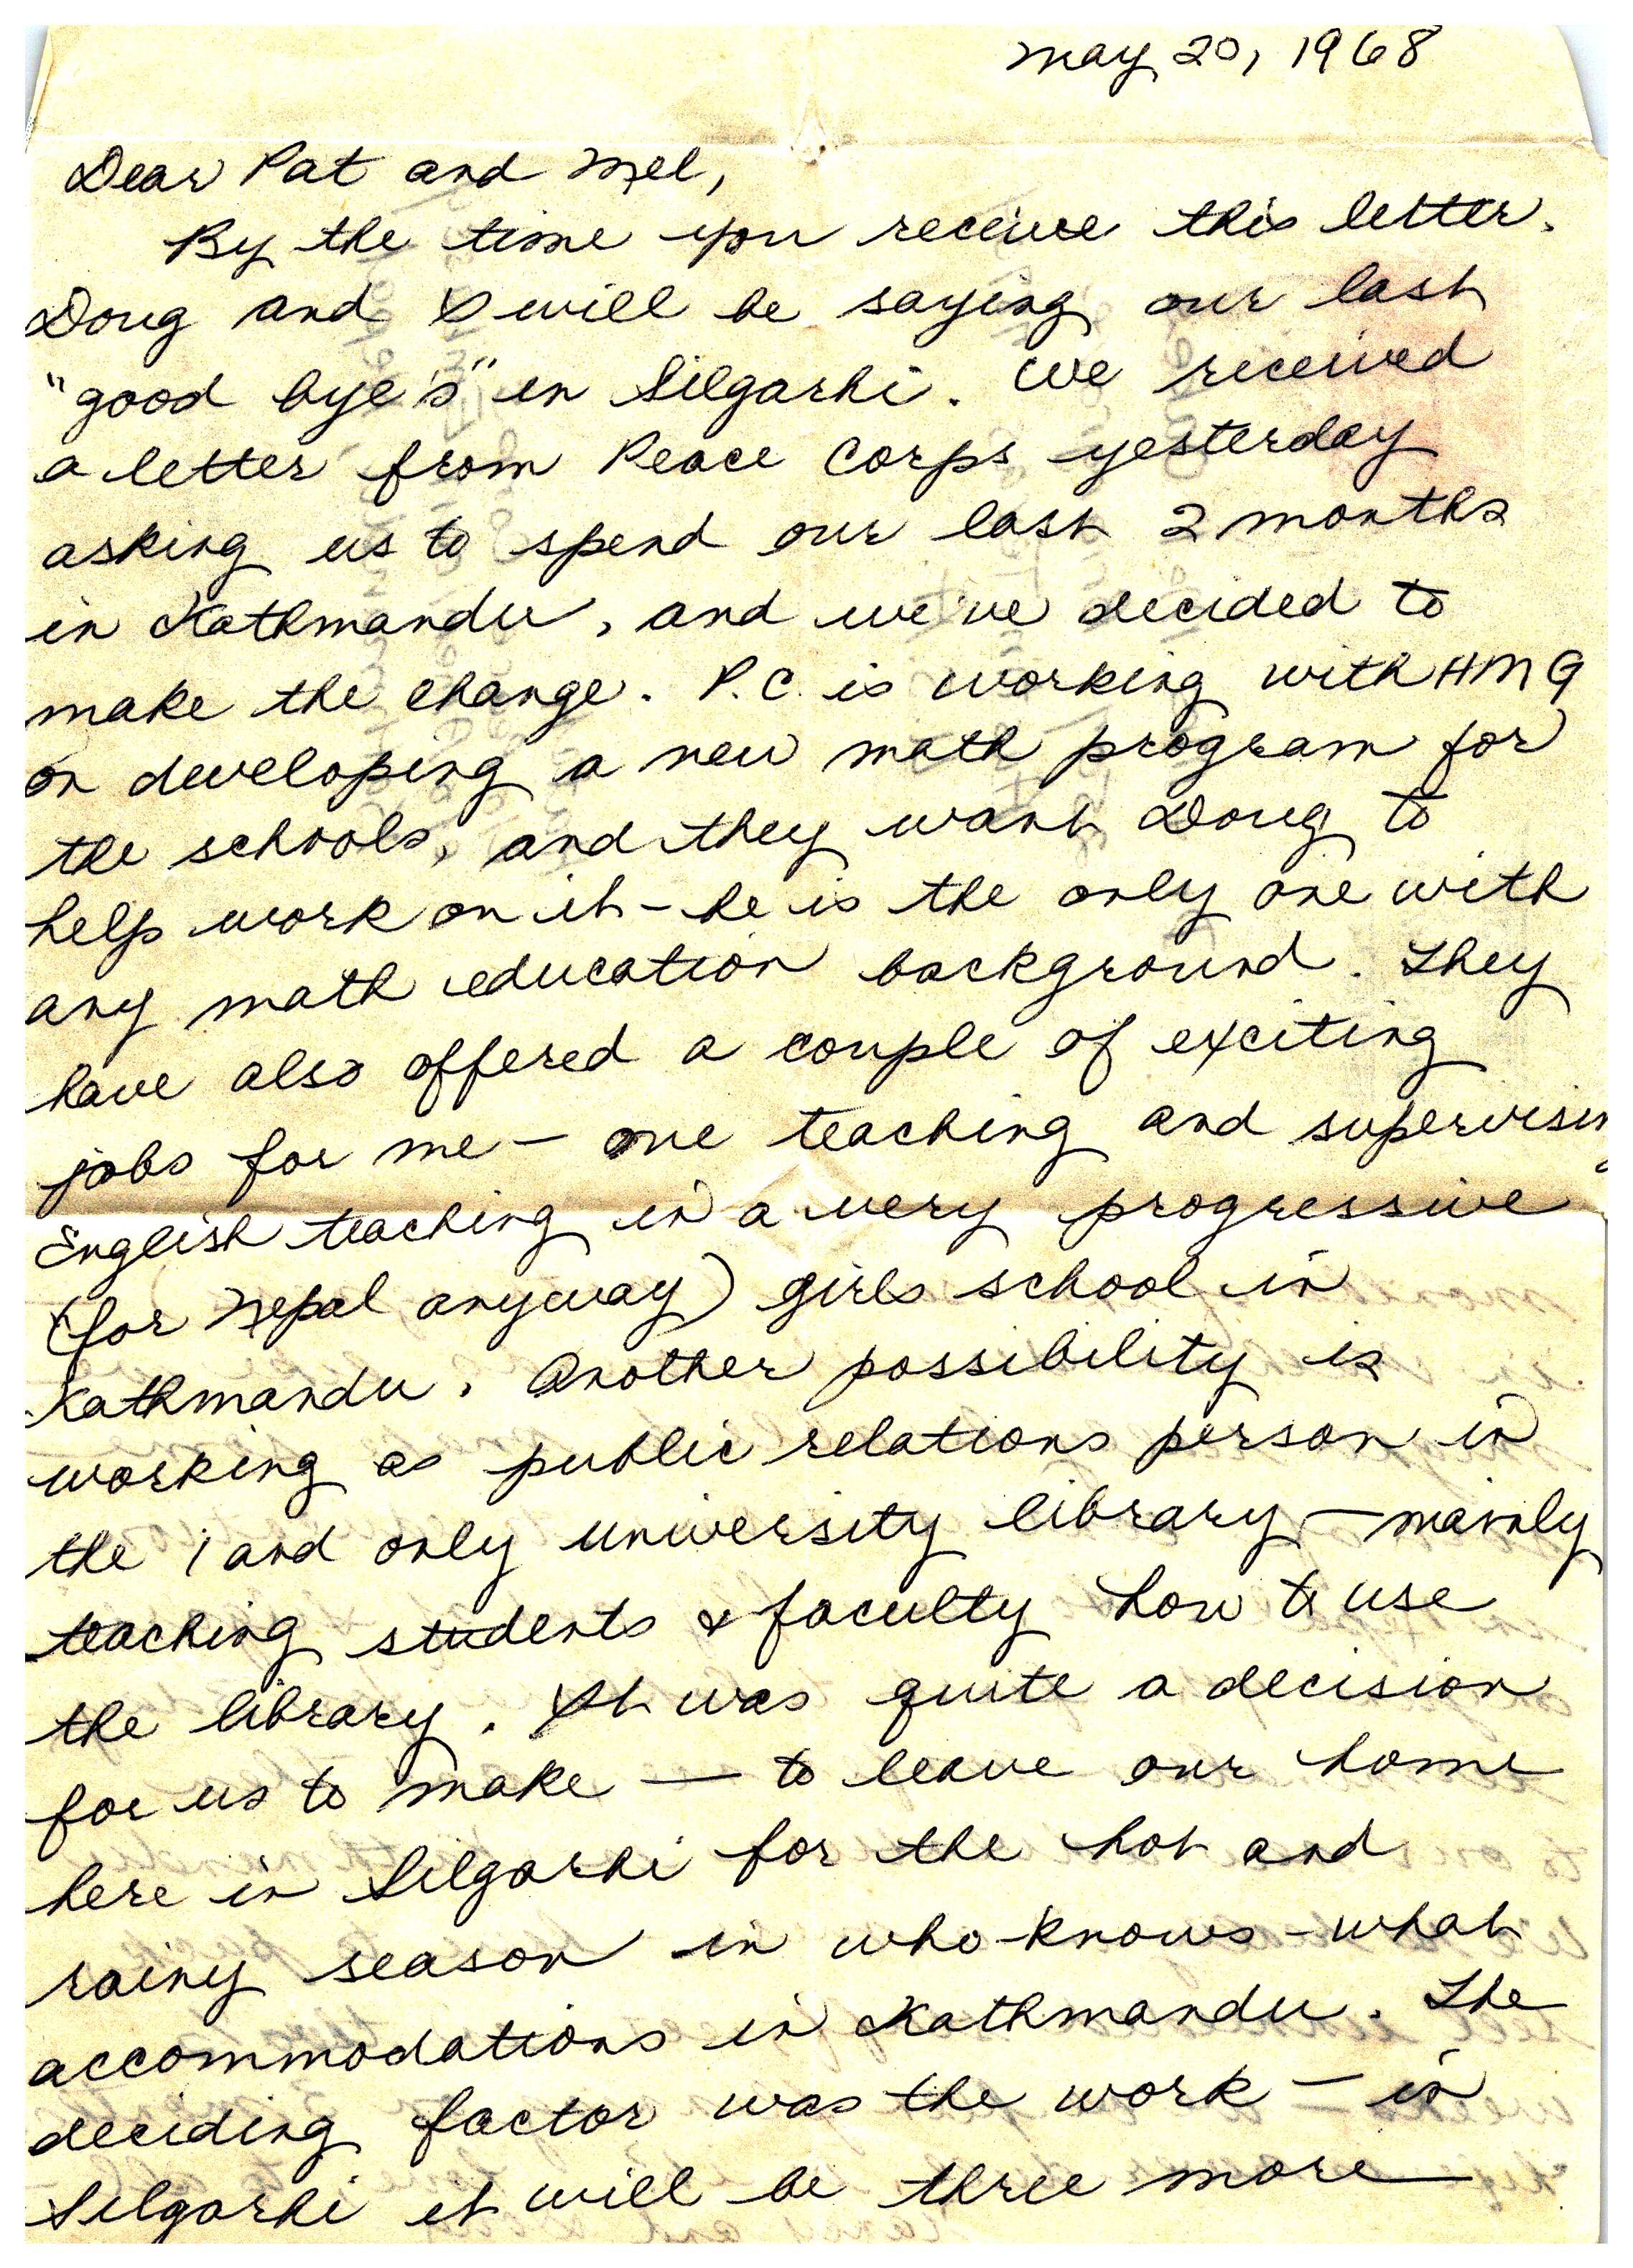 May 20, 1968
Dear Pat and Mel,
By the time you receive this letter.
Doug and I will be saying our last
"good bye's" in Silgarhi. We received
a letter from Peace Corps yesterday
asking us to spend our last 2 months
in Kathmandu, and we've decided to
make the change. P.C. is working with HMG
on developing a new math program for
the schools, and they want Doug to
help work on it - he is the only one with
any math education background. They
have also offered a couple of exciting
jobs for me - one teaching and supervising
English teaching in a very progressive
(for Nepal anyway) girls school in
Kathmandu. Another possibility is
working as public relations person in
the 1 and only university library - mainly
teaching students & faculty how to use
the library. It was quite a decision
for us to make — to leave our home
here in Silgarhi for the hot and
rainy season in who-knows-what
accommodations in Kathmandu. The
deciding factor was the work — in
Silgarhi it will be three more